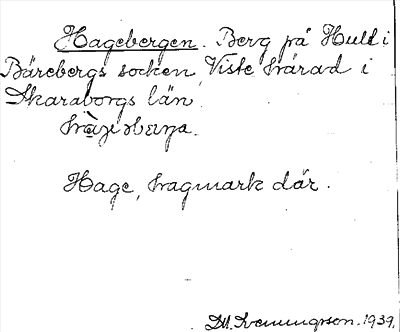 Hagebergen. Berg på Hull i
Bärebergs socken, Viste härad i
Skaraborgs län,
Hage, hagmark där.
Svenningsson. 1939.